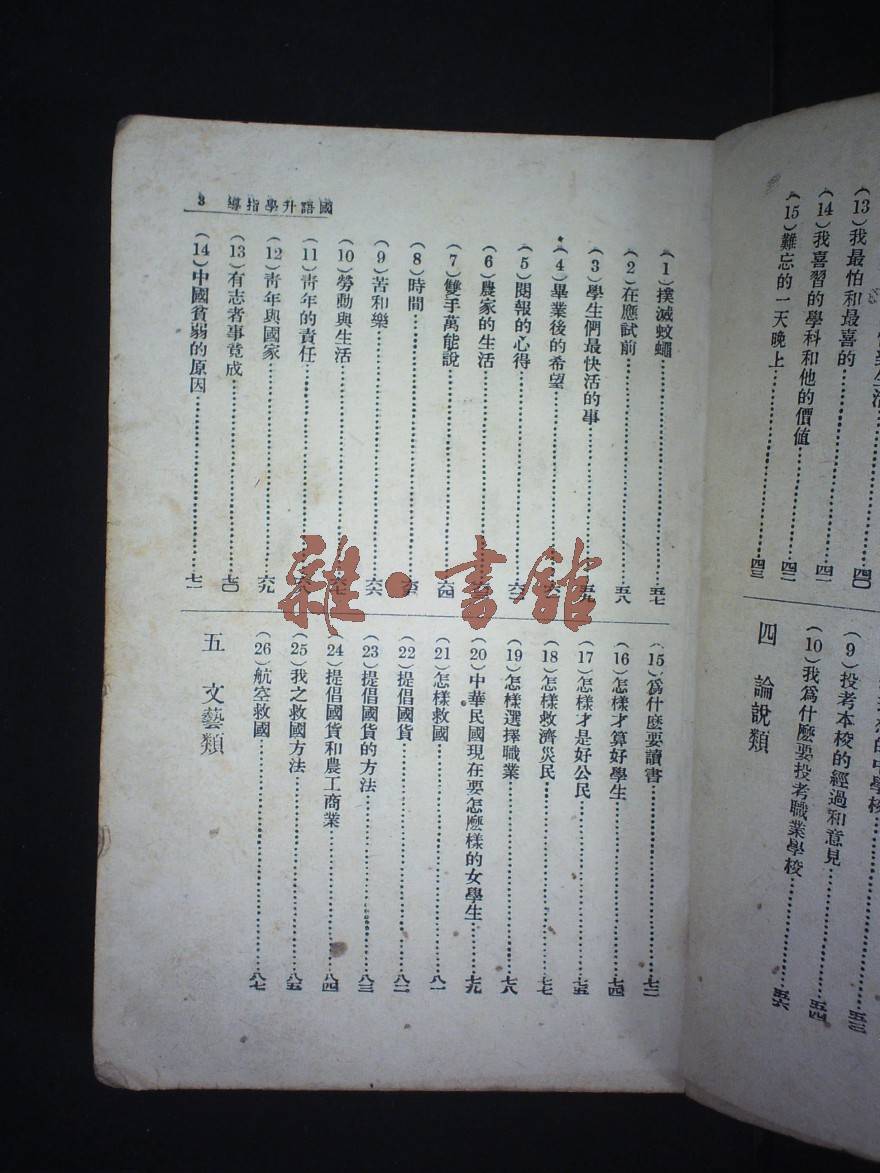 (13)我最怕和最喜的……四〇
(14)我喜習的學科和他的價値……四一
(15)難忘的一天晚上……四三
(9)投考本校的經過和意見……五三
(10)我爲什麽要投考職業學校……五四
四 論說類
國語升學指導 3
(1)撲滅蚊蠅……五七
(2)在應試前……五八
(3)學生們最快活的事……五九
(4)畢業後的希望
(5)閱報的心得
(6)農家的生活
(7)雙手萬能說……六四
(8)時間……六五
(9)苦和樂……六六
(10)勞動與生活……六七
(11)靑年的責任……六八
(12)靑年與國家……六九
(13)有志者事竟成……七〇
(14)中國貧弱的原因……七一
(15)爲什麽要讀書……七二
(16)怎樣才算好學生……七四
(17)怎樣才是好公民……七五
(18)怎樣救濟災民……七七
(19)怎樣選擇職業……七八
(20)中華民國現在要怎麽樣的女學生……七九
(21)怎樣救國……八一
(22)提倡國貨……八二
(23)提倡國貨的方法……八三
(24)提倡國貨和農工商業……八四
(25)我之救國方法……八五
(26)航空救國……八七
五 文藝類
雜·書館